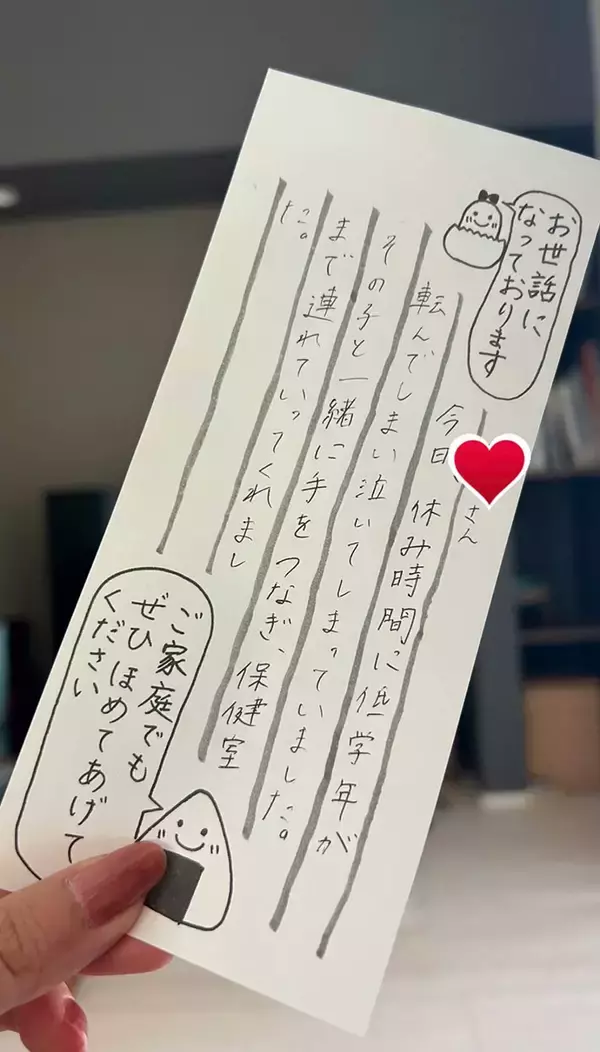 お世話に
なっております
さん
今日、休み時間に低学年が
転んでしまい泣いてしまっていました。
その子と一緒に手をつなぎ、保健室
まで連れていってくれまし
た。
ご家庭でも
ぜひほめてあげて
ください